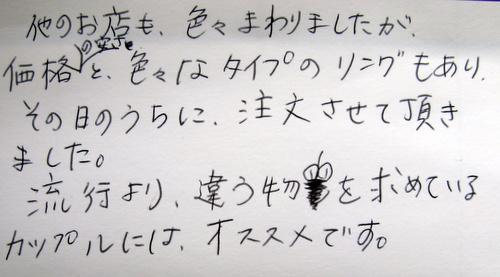 他のお店も、色々まわりましたが、
価格の安さと、色々なタイプのリングもあり、
その日のうちに、注文させて頂き
ました。
流行より、違う物を求めている
カップルには、オススメです。